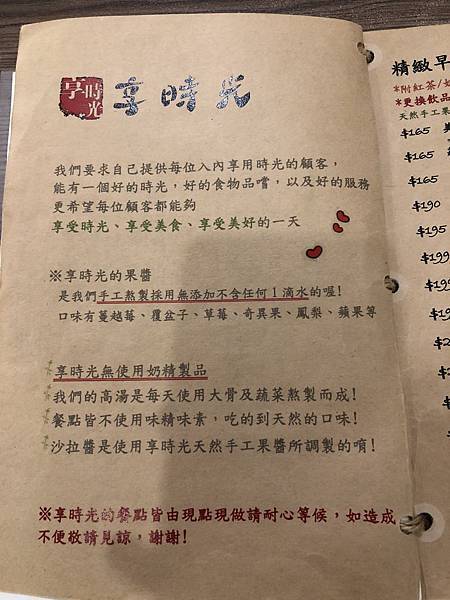 享時光
享時光
我們要求自己提供每位入內享用時光的顧客，
能有一個好的時光，好的食物品嚐，以及好的服務
更希望每位顧客都能夠
享受時光、享受美食、享受美好的一天
※享時光的果醬
是我們手工熬製採用無添加不含任何1滴水的喔!
口味有蔓越莓、覆盆子、草莓、奇異果、鳳梨、蘋果等
享時光無使用奶精製品
我們的高湯是每天使用大骨及蔬菜熬製而成!
餐點皆不使用味精味素，吃的到天然的口味!
沙拉醬是使用享時光天然手工果醬所調製的唷!
※享時光的餐點皆由現點現做請耐心等候，如造成
不便敬請見諒，謝謝!
精緻早
*附紅茶/
*更換飲品
天然手工果
$165
$165
$165
$190
$195
$199
$199